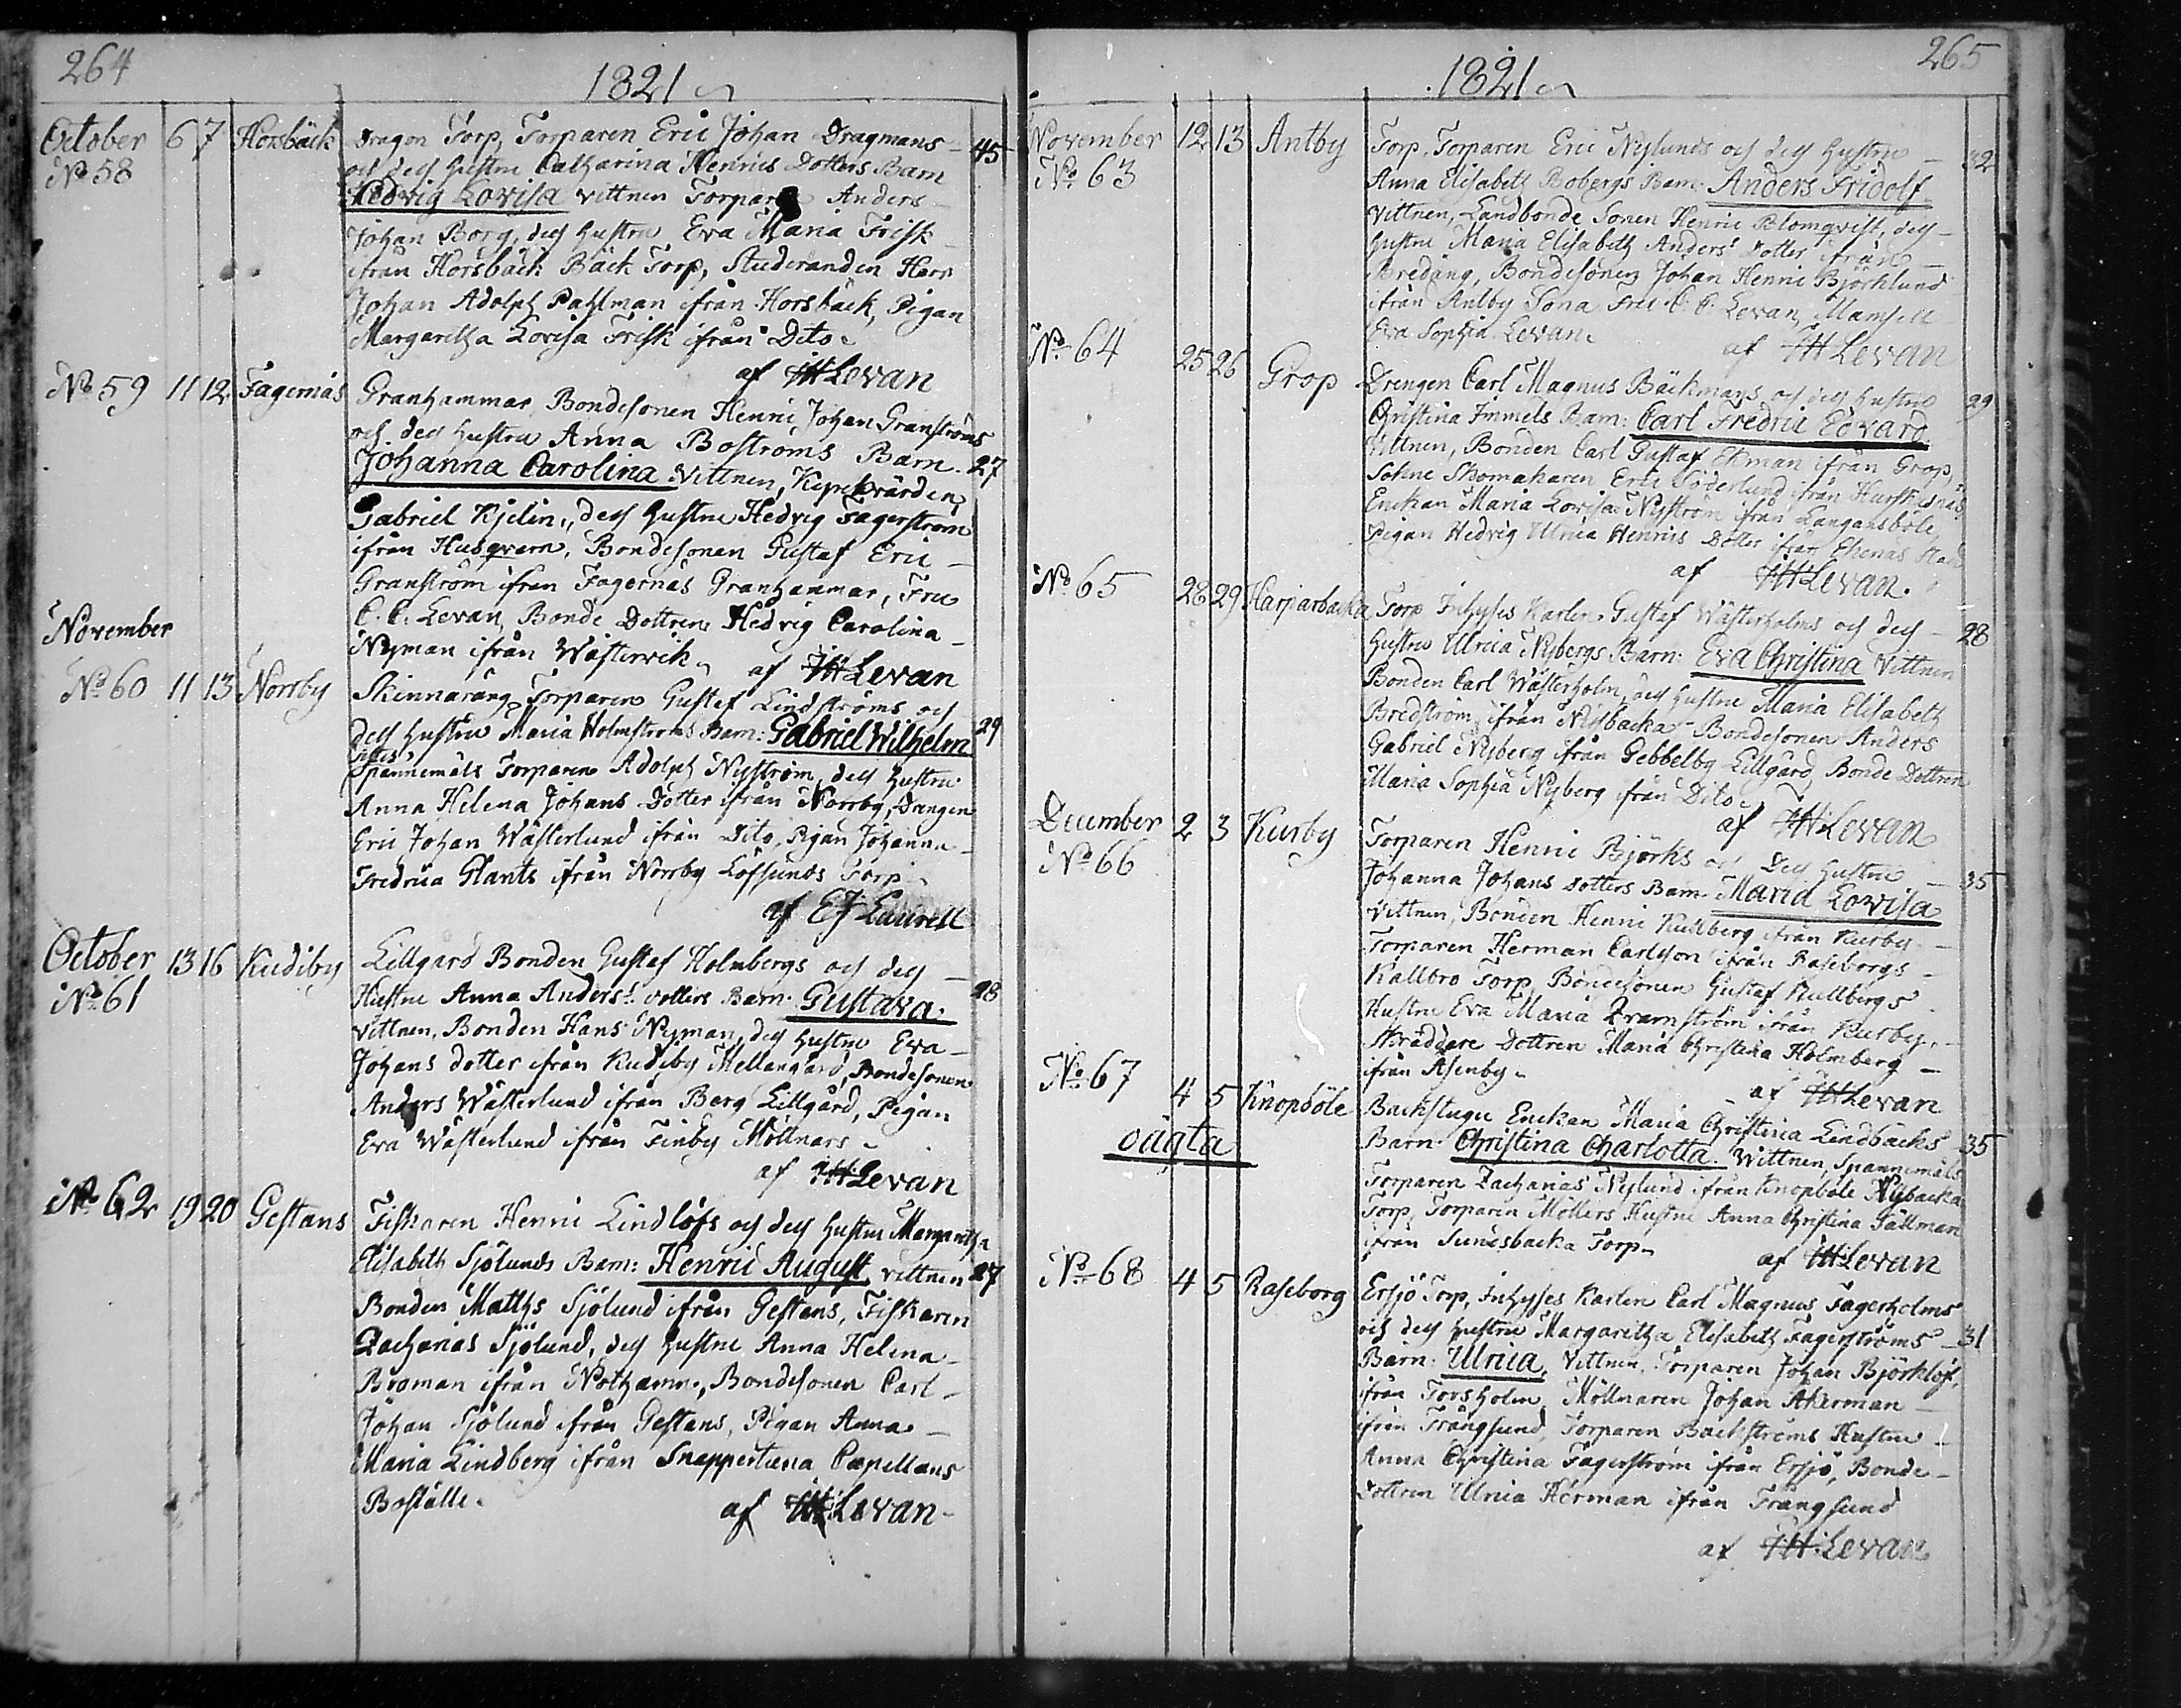 264
1821
October 6 7 Horsbäck Dragon Torp, Torparen Eric Johan Dragmans 45
N:o 58 och dess Hustru Catharina Henrics Dotters Barn
Hedvig Lovisa vittnen Torparen Anders
Johan Borg, dess Hustru Eva Maria Frisk
ifrån Horsbäck Bäck Torp, Studeranden Herr
Johan Adolph Pahlman ifrån Horsbäck, Pigan
Margaretha Lovisa Frisk ifrån Dito.
af IH Levan
N:o 59 11 12 Fagernäs Granhammar, Bondesonen Henric Johan Granströms
och dess Hustru Anna Boströms Barn. 27
Johanna Carolina. Vittnen, Kyrckvärden
Gabriel Kjelin, dess Hustru Hedvig Fagerström
ifrån Husqvarn, Bondesonen Gustaf Eric
Granström ifrån Fagernäs Granhammar, Fru
C. C. Levan, Bonde Dottren Hedvig Carolina
Nyman ifrån Wästervik. af IH Levan
November
N:o 60 11 13 Norrby Skinnaräng Torparen Gustaf Lindströms och
dess Hustru Maria Holmströms Barn: Gabriel Wilhelm 29
Spannemåls Torparen Adolph Nyström, dess Hustru
Anna Helena Johans Dotter ifrån Norrby, Drengen
Eric Johan Wästerlund ifrån Dito, Pigan Johanna
Fredrica Glants ifrån Norrby Löfsunds Torp
af EJ Laurell
October 13 16 Kudiby Lillgård Bonden Gustaf Holmbergs och dess
N:o 61 Hustru Anna Anders dotters Barn. Gustava. 28
vittnen, Bonden Hans Nyman, dess Hustru Eva
Johans dotter ifrån Kudiby Mellangård, Bondesonen
Anders Wästerlund ifrån Berg Lillgård, Pigan
Eva Wästerlund ifrån Finby Möllnars
af IH Levan
N:o 62 19 20 Gestans Fiskaren Henric Lindlöfs och dess Hustru Margaretha
Elisabeth Sjölunds Barn: Henric August, vittnen 27
Bonden Matths Sjölund ifrån Gestans, Fiskaren
Zacharias Sjölund, dess Hustru Anna Helena
Broman ifrån Nothamn, Bondesonen Carl
Johan Sjölund ifrån Gestans, Pigan Anna
Maria Lindberg ifrån Snappertuna Capellans
Boställe.
af IH Levan
265
1821
November 12 13 Antby Torp, Torparen Eric Nylunds och dess Hustru 32
N:o 63 Anna Elisabeth Bobergs Barn: Anders Fridolf
vittnen, Landbonde Sonen Henric Blomqvist, dess
Hustru Maria Elisabeth Anders Dotter ifrån
Bredäng, Bondesonen Johan Henric Björklund
ifrån Antby Fru C. C. Levan, Mamsell
Eva Sophia Levan.
af IH Levan
N:o 64 25 26 Grop Drengen Carl Magnus Bäckmans och dess Hustru 29
Christina Immels Barn: Carl Fredric Edvard
Vittnen, Bonden Carl Gustaf Ekman ifrån Grop,
Sokne Skomakaren Eric Söderlund ifrån
Enckan Maria Lovisa Nyström ifrån Langansböle,
Pigan Hedvig Ulrica Henrics Dotter ifrån Ekenäs Stad
af IH Levan.
N:o 65 28 29 Harparbacka Torp Inhyses Karlen Gustaf Wästerholms och dess 28
Hustru Ulrica Nybergs Barn: Eva Christina Vittnen
Bonden Carl Wästerholm, dess Hustru Maria Elisabeth
Bredström, ifrån Nybacka, Bondesonen Anders
Gabriel Nyberg ifrån Gebbelby Lillgård, Bonde Dottren
Maria Sophia Nyberg ifrån Dito.
af IH Levan
December 2 3 Kurby Torparen Henric Björks och Dess Hustru
N:o 66 Johanna Johans dotters Barn Maria Lovisa 35
vittnen, Bonden Henric Kullberg ifrån Kurby
Torparen Herman Carlsson ifrån Raseborgs
Källbro Torp, Bondesonen Gustaf Kullbergs
Hustru Eva Maria Qvarnström ifrån Kurby,
Skräddare Dottren Maria Christina Holmberg
ifrån Åsenby.
af IH Levan
N:o 67 4 5 Knopböle Backstugu Enckan Maria Christina Lindbäcks
oägta Barn Christina Charlotta. Wittnen, Spannemåls 35
Torparen Zacharias Nylund ifrån Knopböle Nybacka
Torp, Torparen Möllers Hustru Anna Christina Sällman
ifrån Sundsbacka Torp.
af IH Levan
N:o 68 4 5 Raseborg Ersjö Torp, Inhyses Karlen Carl Magnus Fagerholms
och dess Hustru Margaretha Elisabeth Fagerströms 31
Barn: Ulrica, Vittnen, Torparen Johan Björklöf,
ifrån Forsholm, Möllnaren Johan Åkerman
ifrån Trångsund, Torparen Backströms Hustru
Anna Christina Fagerström ifrån Ersjö, Bonde
Dottren Ulrica Herman ifrån Trångsund
af IH Levan